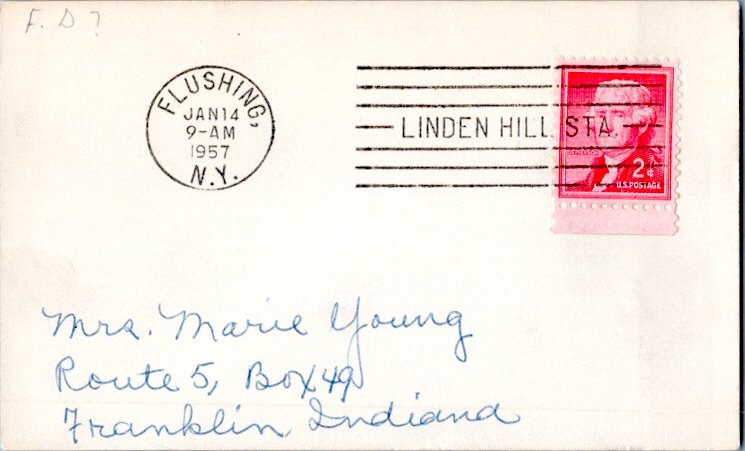 F. D ?
FLUSHING,
JAN 14
9-AM
1957
N.Y.
LINDEN HILL STA.
JEFFERSON
2¢
U.S. POSTAGE
Mrs. Marie Young
Route 5, Box 49
Franklin, Indiana